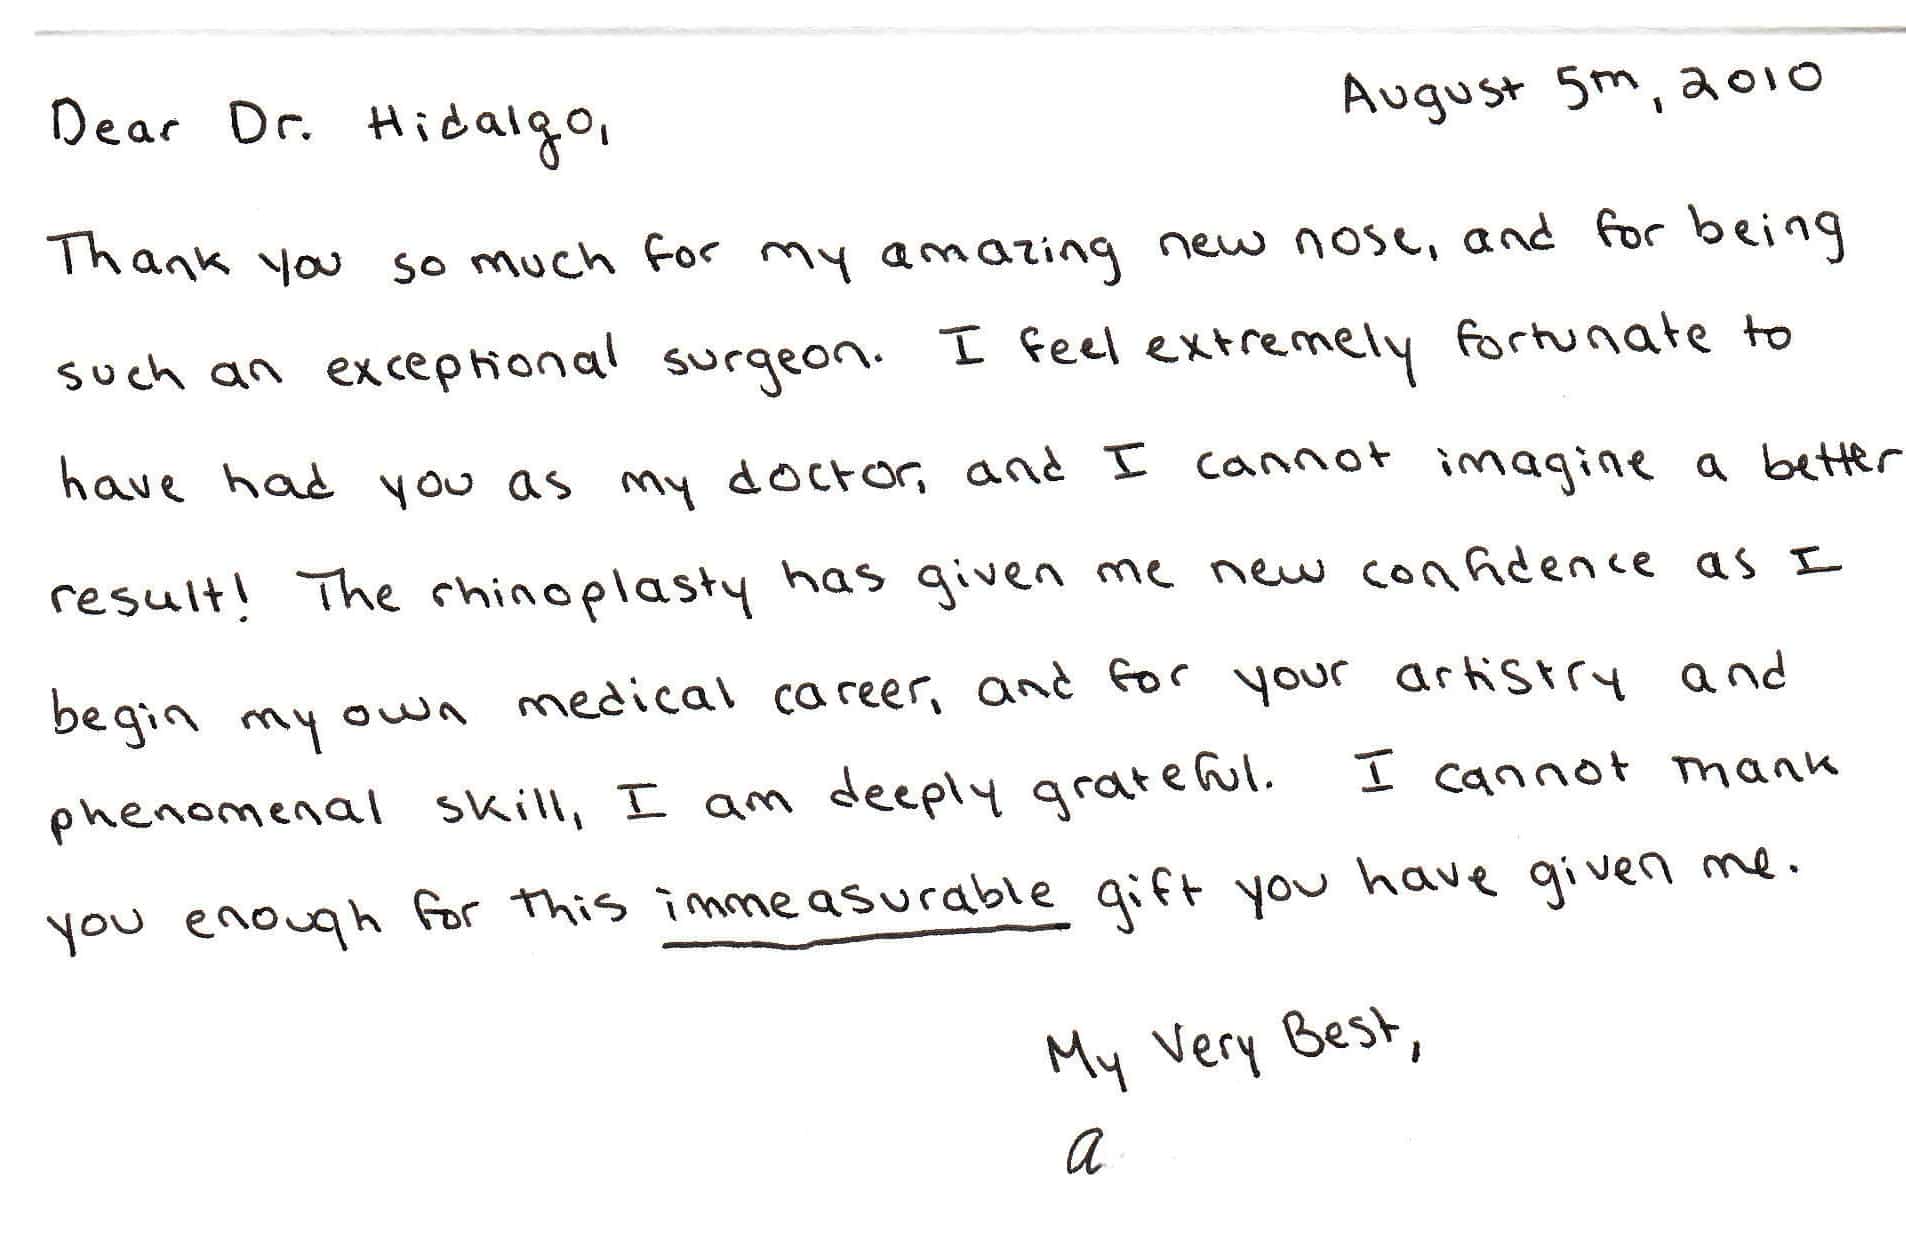 August 5th, 2010
Dear Dr. Hidalgo,
Thank you so much for my amazing new nose, and for being
such an exceptional surgeon. I feel extremely fortunate to
have had you as my doctor, and I cannot imagine a better
result! The rhinoplasty has given me new confidence as I
begin my own medical career, and for your artistry and
phenomenal skill, I am deeply grateful. I cannot thank
you enough for this immeasurable gift you have given me.
My Very Best,
a